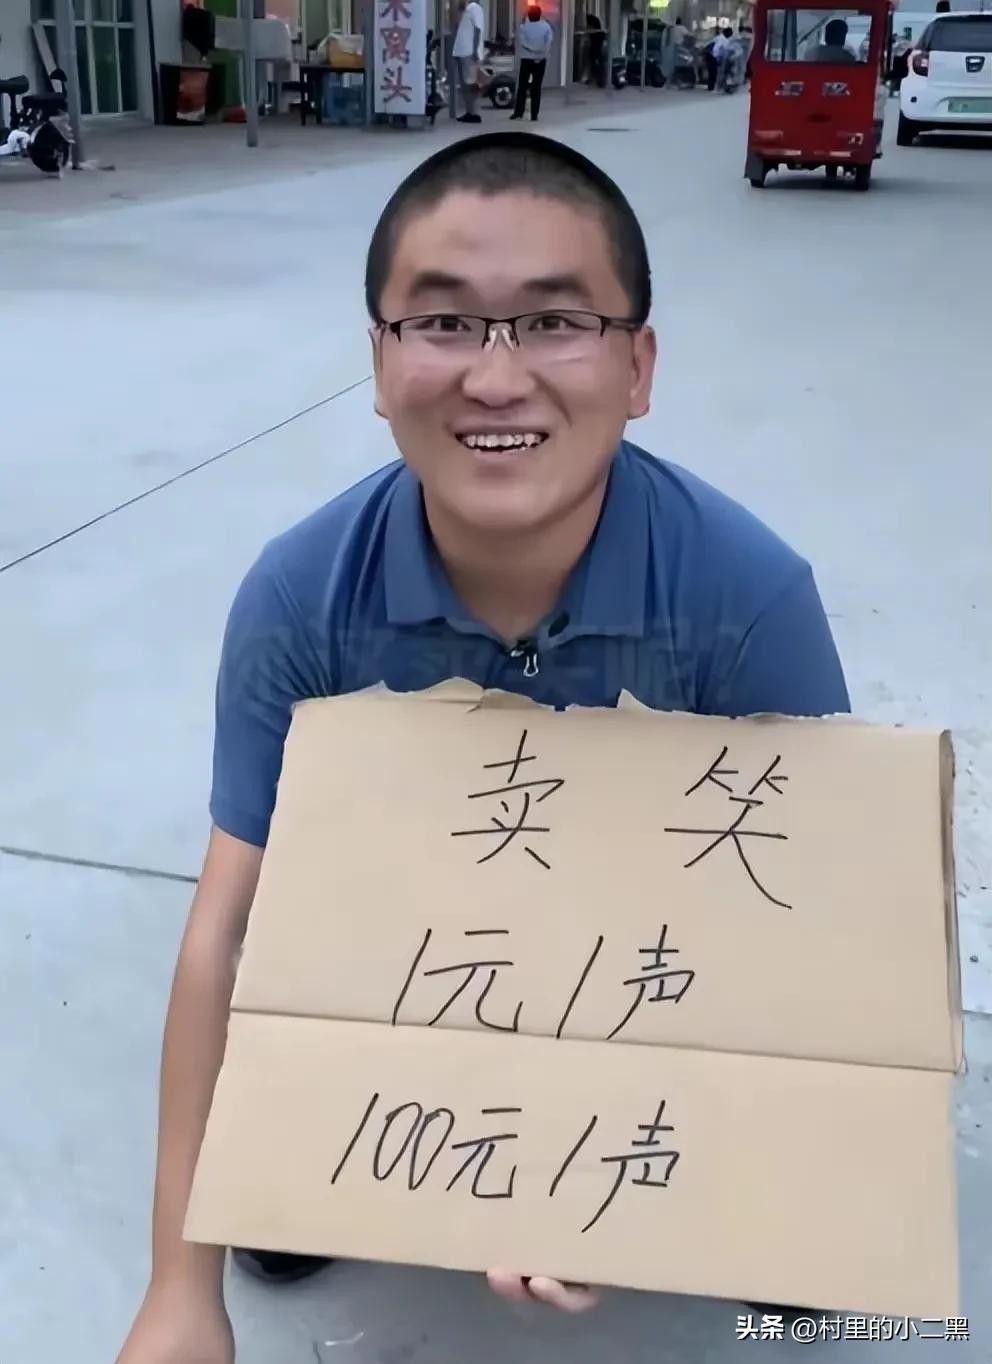 窝头
卖 笑
1元/声
100元/声
头条 @村里的小二黑